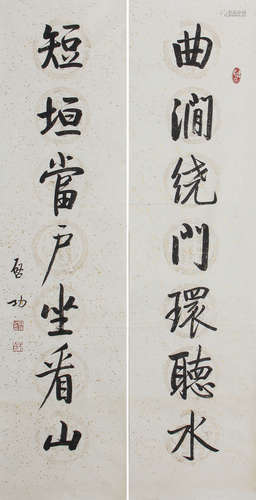 曲澗绕門環聽水
短垣當户坐看山
啓功